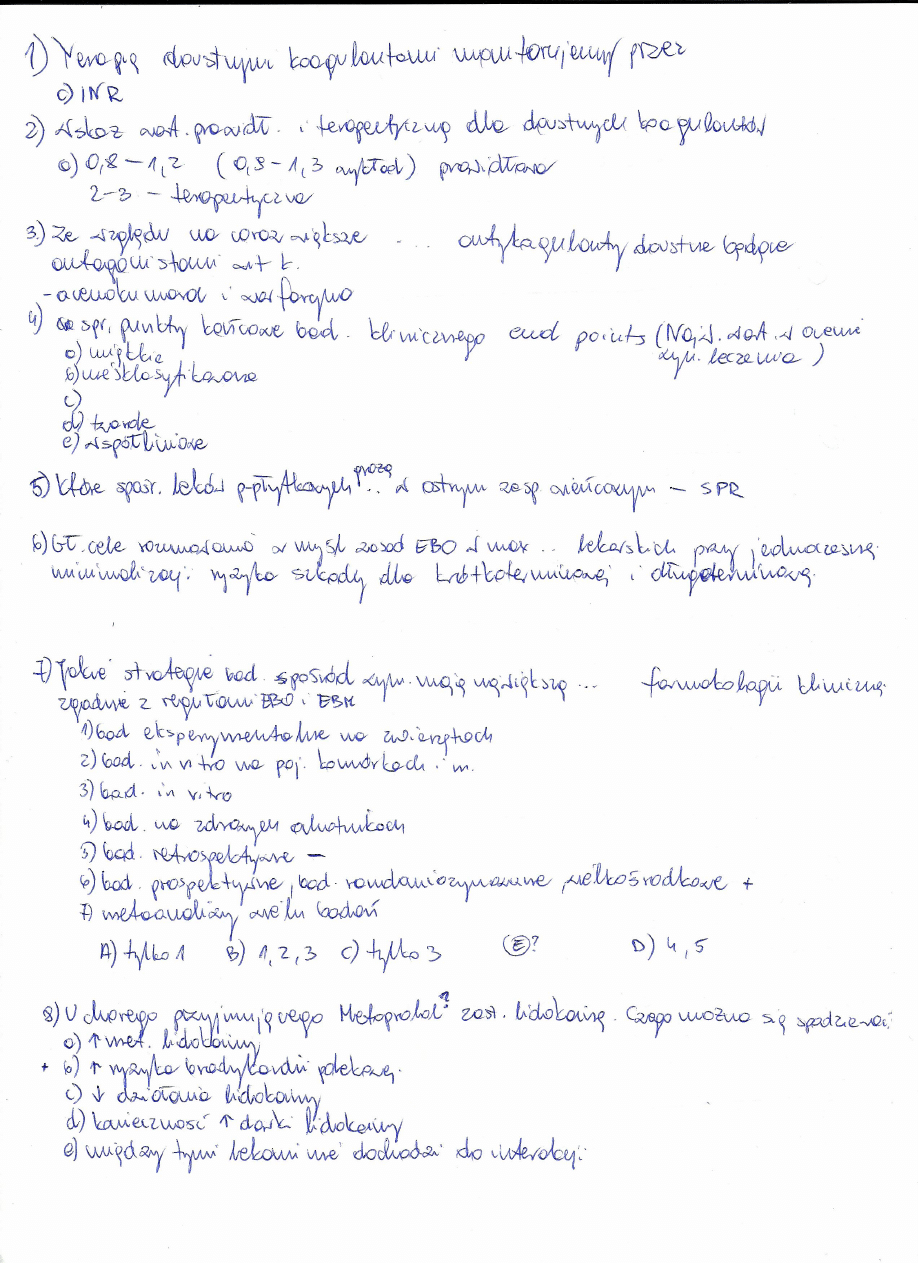 1) Terapię doustnymi koagulantami monitorujemy przez
c) INR
2) Wskaż wart. prawidł. i terapeutyczną dla doustnych koagulantów
a) 0,8 – 1,2 (0,9 – 1,3 wykład) prawidłowa
2-3 – terapeutyczna
3.) Ze względu na coraz większe ... antykoagulanty doustne będące
antagonistami wit k.
- acenokumarol i warfaryna
4) spr. punkty końcowe bad. klinicznego end points (Najw. wart. w ocenie
wyn. leczenia)
a) miękkie
b) niesklasyfikowane
c)
d) twarde
e) współliniowe
5) Które spośr. leków p-płytkowych ... w ostrym zesp wieńcowym – SPR
6) Gł. cele rozumowania w myśl zasad EBO w max .. lekarskich przy jednoczesną
minimalizacji ryzyka szkody dla krótkoterminowej i długoterminową.
7) Jakie strategie bad. spośród wym. mają największą ... farmakologii kliniczną
zgodnie z regułami EBO i EBM
1) bad eksperymentalne na zwierzętach
2) bad. in vitro na poj. komórkach i in.
3) bad. in vitro
4) bad. na zdrowych ochotnikach
5) bad. retrospektywne –
6) bad. prospektywne, bad. randomizynowane, wielkośrodkowe +
7) metaanalizy wielu badań
A) tylko 1 B) 1, 2, 3 C) tylko 3 (E)? D) 4, 5
8) U chorego przyjmującego Metoprolol? zast. lidokainę. Czego można się spodziewać:
a) ↑ met. lidokainy
+ b) ↑ ryzyka bradykardii polekową.
c) ↓ działania lidokainy
d) konieczność ↑ dawki lidokainy
e) między tymi lekami nie dochodzi do interakcji